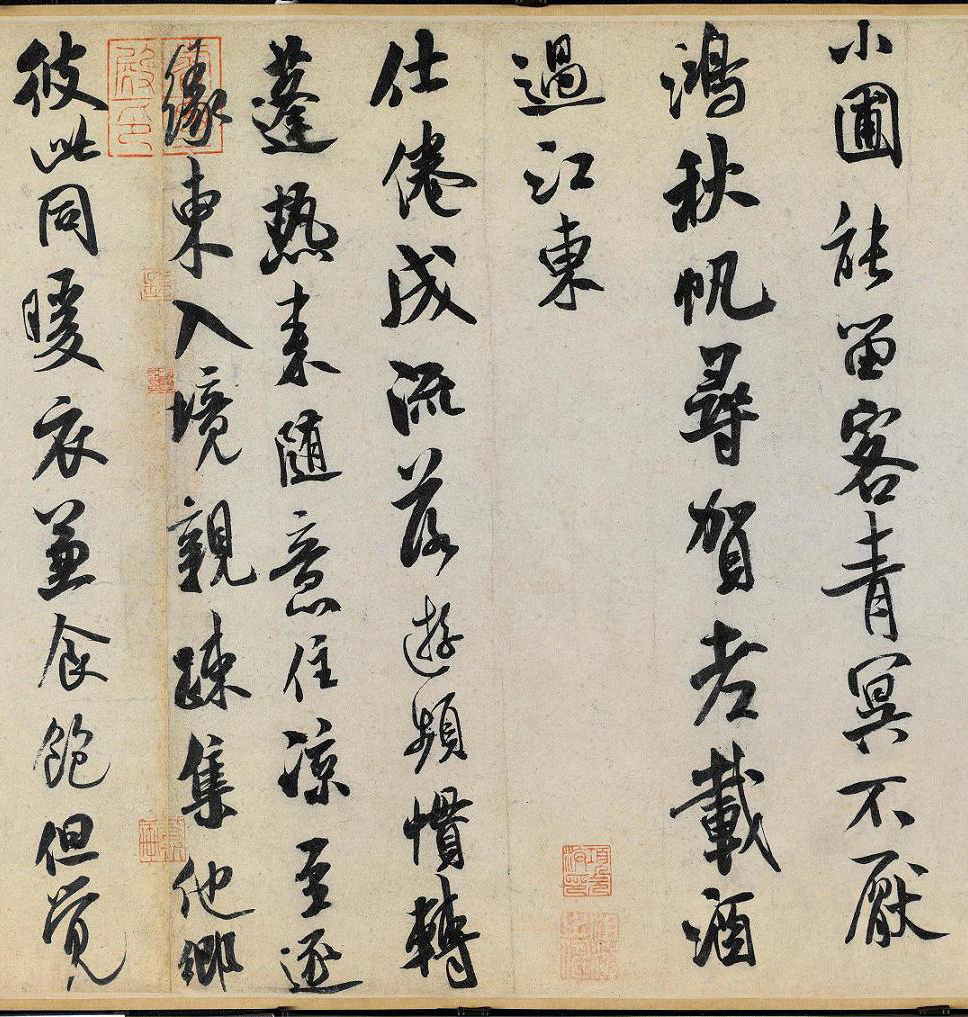 小圃能留客青冥不厭
鴻秋帆尋賀老載酒
過江東
仕倦成流落遊頻慣轉
蓬熱來隨意住涼至逐
緣東入境親踈集他鄉
彼此同暖衣兼食飽但覺